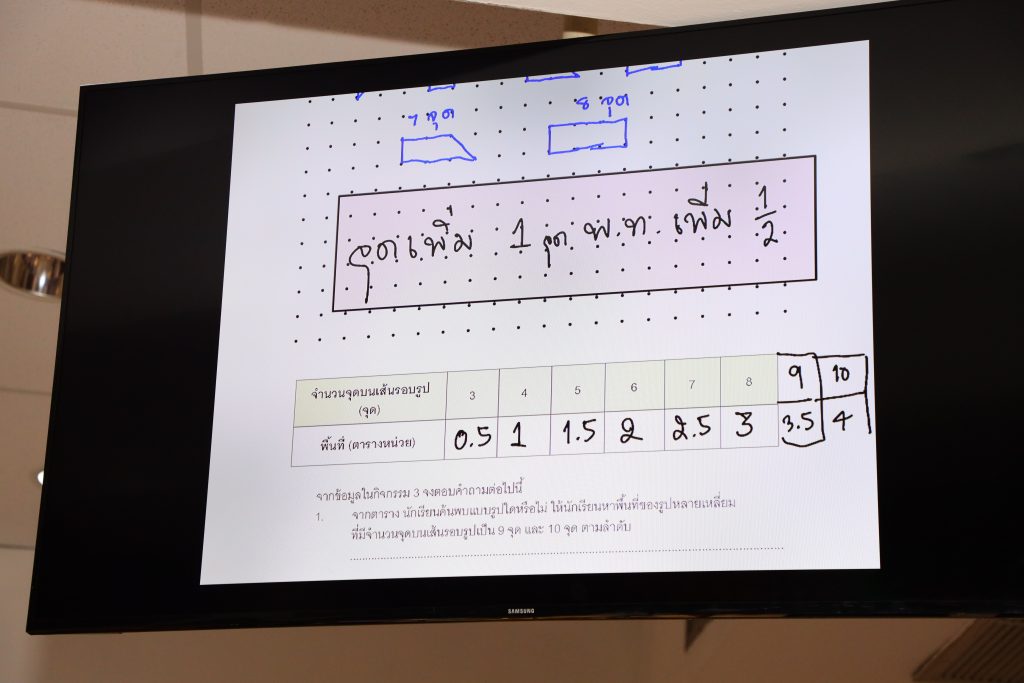 7 จุด
8 จุด
จุดเพิ่ม 1 จุด พ.ท. เพิ่ม 1/2
จำนวนจุดบนเส้นรอบรูป (จุด) 3 4 5 6 7 8 9 10
พื้นที่ (ตารางหน่วย) 0.5 1 1.5 2 2.5 3 3.5 4
จากข้อมูลในกิจกรรม 3 จงตอบคำถามต่อไปนี้
1. จากตาราง นักเรียนค้นพบแบบรูปใดหรือไม่ ให้นักเรียนหาพื้นที่ของรูปหลายเหลี่ยม
ที่มีจำนวนจุดบนเส้นรอบรูปเป็น 9 จุด และ 10 จุด ตามลำดับ
SAMSUNG